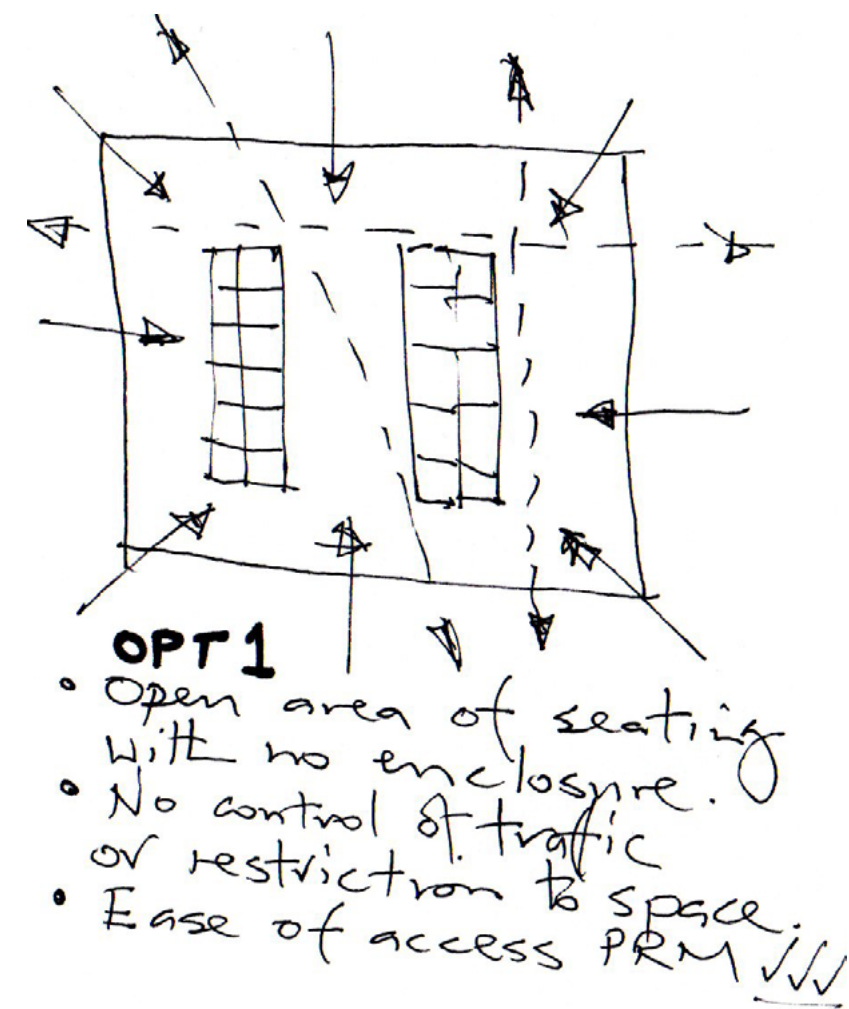 OPT 1
• Open area of seating
with no enclosure.
• No control of traffic
or restriction to space.
• Ease of access PRM ✓✓✓